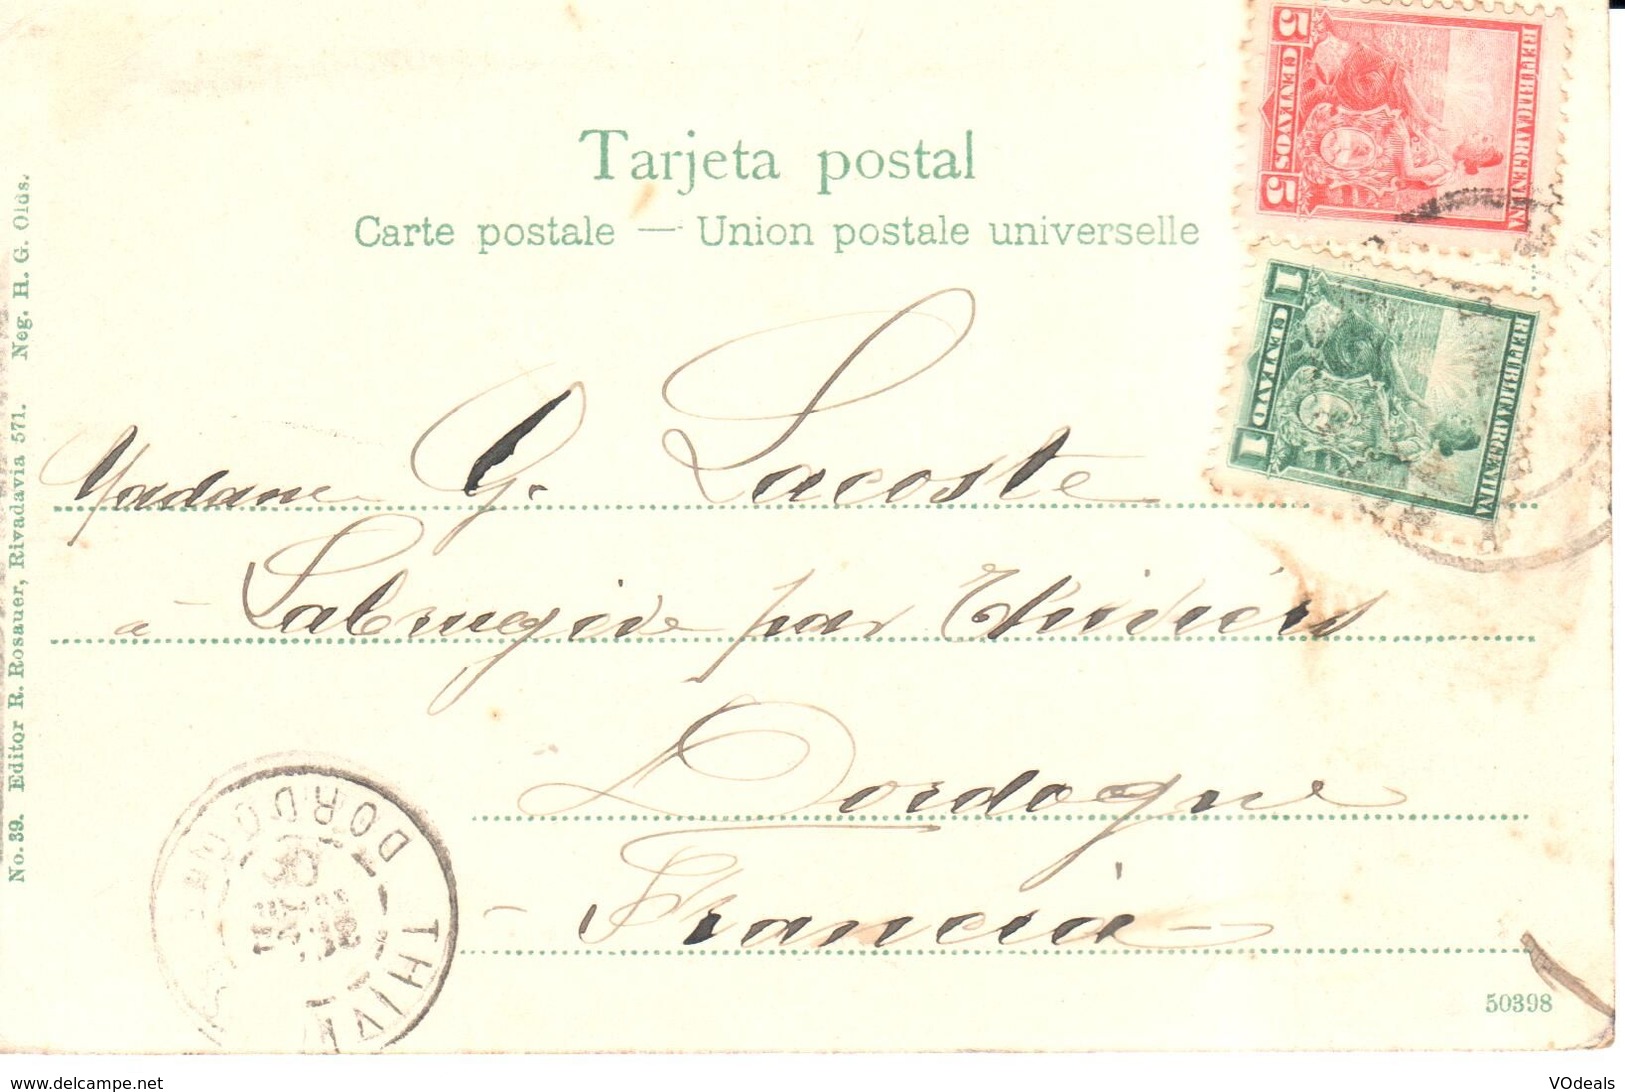 Tarjeta postal
Carte postale — Union postale universelle
5 CENTAVOS 5
REPUBLICA ARGENTINA
1 CENTAVO 1
REPUBLICA ARGENTINA
Madame G. Lacoste
à Labrugère par Thiviers
Dordogne
- Francia -
No. 39. Editor R. Rosauer, Rivadavia 571. Neg. H. G. Olds.
DORDOGNE
50398
www.delcampe.net
VOdeals